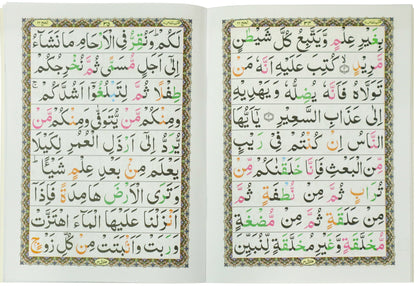 بِغَيْرِ عِلْمٍ وَّيَتَّبِعُ كُلَّ شَيْطٰنٍ
مَّرِيْدٍ ۙ كُتِبَ عَلَيْهِ اَنَّهٗ مَنْ
تَوَلَّاهُ فَاَنَّهٗ يُضِلُّهٗ وَيَهْدِيْهِ
اِلٰى عَذَابِ السَّعِيْرِ يٰۤاَيُّهَا
النَّاسُ اِنْ كُنْتُمْ فِيْ رَيْبٍ
مِّنَ الْبَعْثِ فَاِنَّا خَلَقْنٰكُمْ مِّنْ
تُرَابٍ ثُمَّ مِنْ نُّطْفَةٍ ثُمَّ
مِنْ عَلَقَةٍ ثُمَّ مِنْ مُّضْغَةٍ
مُّخَلَّقَةٍ وَّغَيْرِ مُخَلَّقَةٍ لِّنُبَيِّنَ
لَكُمْ ؕ وَنُقِرُّ فِي الْاَرْحَامِ مَا نَشَآءُ
اِلٰۤى اَجَلٍ مُّسَمًّى ثُمَّ نُخْرِجُكُمْ
طِفْلًا ثُمَّ لِتَبْلُغُوْۤا اَشُدَّكُمْ ۚ
وَمِنْكُمْ مَّنْ يُّتَوَفّٰى وَمِنْكُمْ مَّنْ
يُّرَدُّ اِلٰۤى اَرْذَلِ الْعُمُرِ لِكَيْلَا
يَعْلَمَ مِنْۢ بَعْدِ عِلْمٍ شَيْـًٔا ؕ
وَتَرَى الْاَرْضَ هَامِدَةً فَاِذَاۤ
اَنْزَلْنَا عَلَيْهَا الْمَآءَ اهْتَزَّتْ
وَرَبَتْ وَاَنْۢبَتَتْ مِنْ كُلِّ زَوْجٍۭ